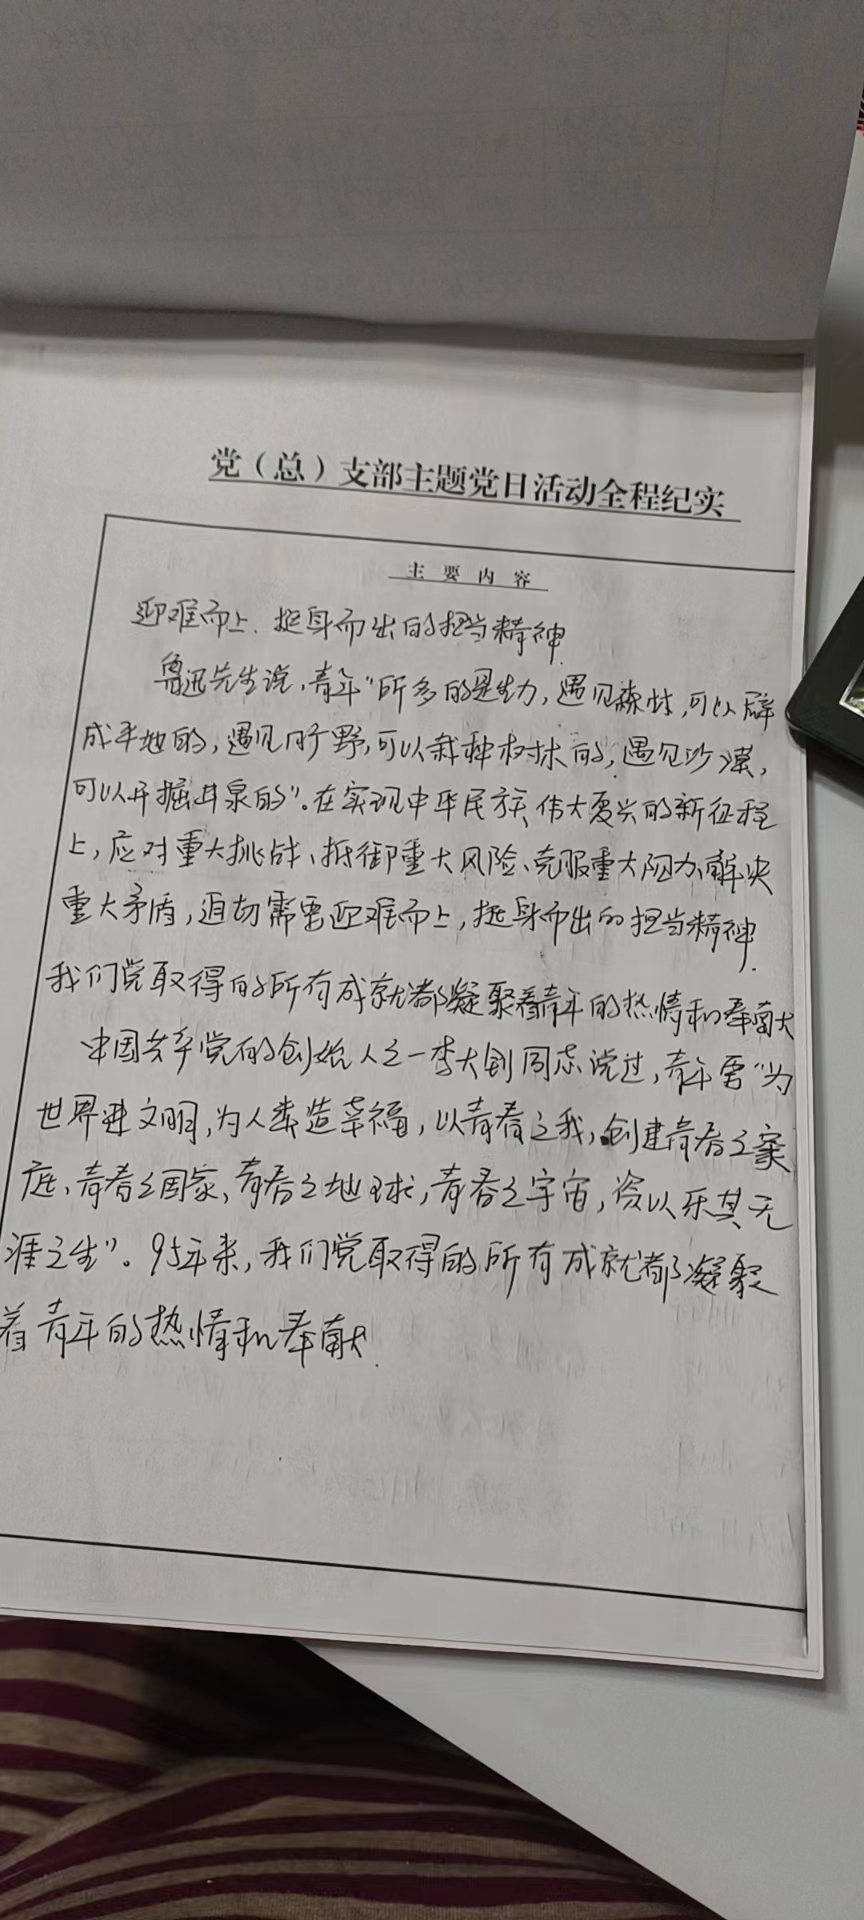 党（总）支部主题党日活动全程纪实
主要内容
迎难而上、挺身而出的担当精神
鲁迅先生说，青年“所多的是生力，遇见森林，可以辟
成平地的，遇见旷野，可以栽种树木的，遇见沙漠，
可以开掘井泉的”。在实现中华民族伟大复兴的新征程
上，应对重大挑战、抵御重大风险、克服重大阻力、解决
重大矛盾，迫切需要迎难而上，挺身而出的担当精神.
我们党取得的所有成就都凝聚着青年的热情和奉献
中国共产党的创始人之一李大钊同志说过，青年要“为
世界进文明，为人类造幸福，以青春之我，创建青春之家
庭、青春之国家、青春之地球，青春之宇宙，资以乐其无
涯之生”。95年来，我们党取得的所有成就都凝聚
着青年的热情和奉献.